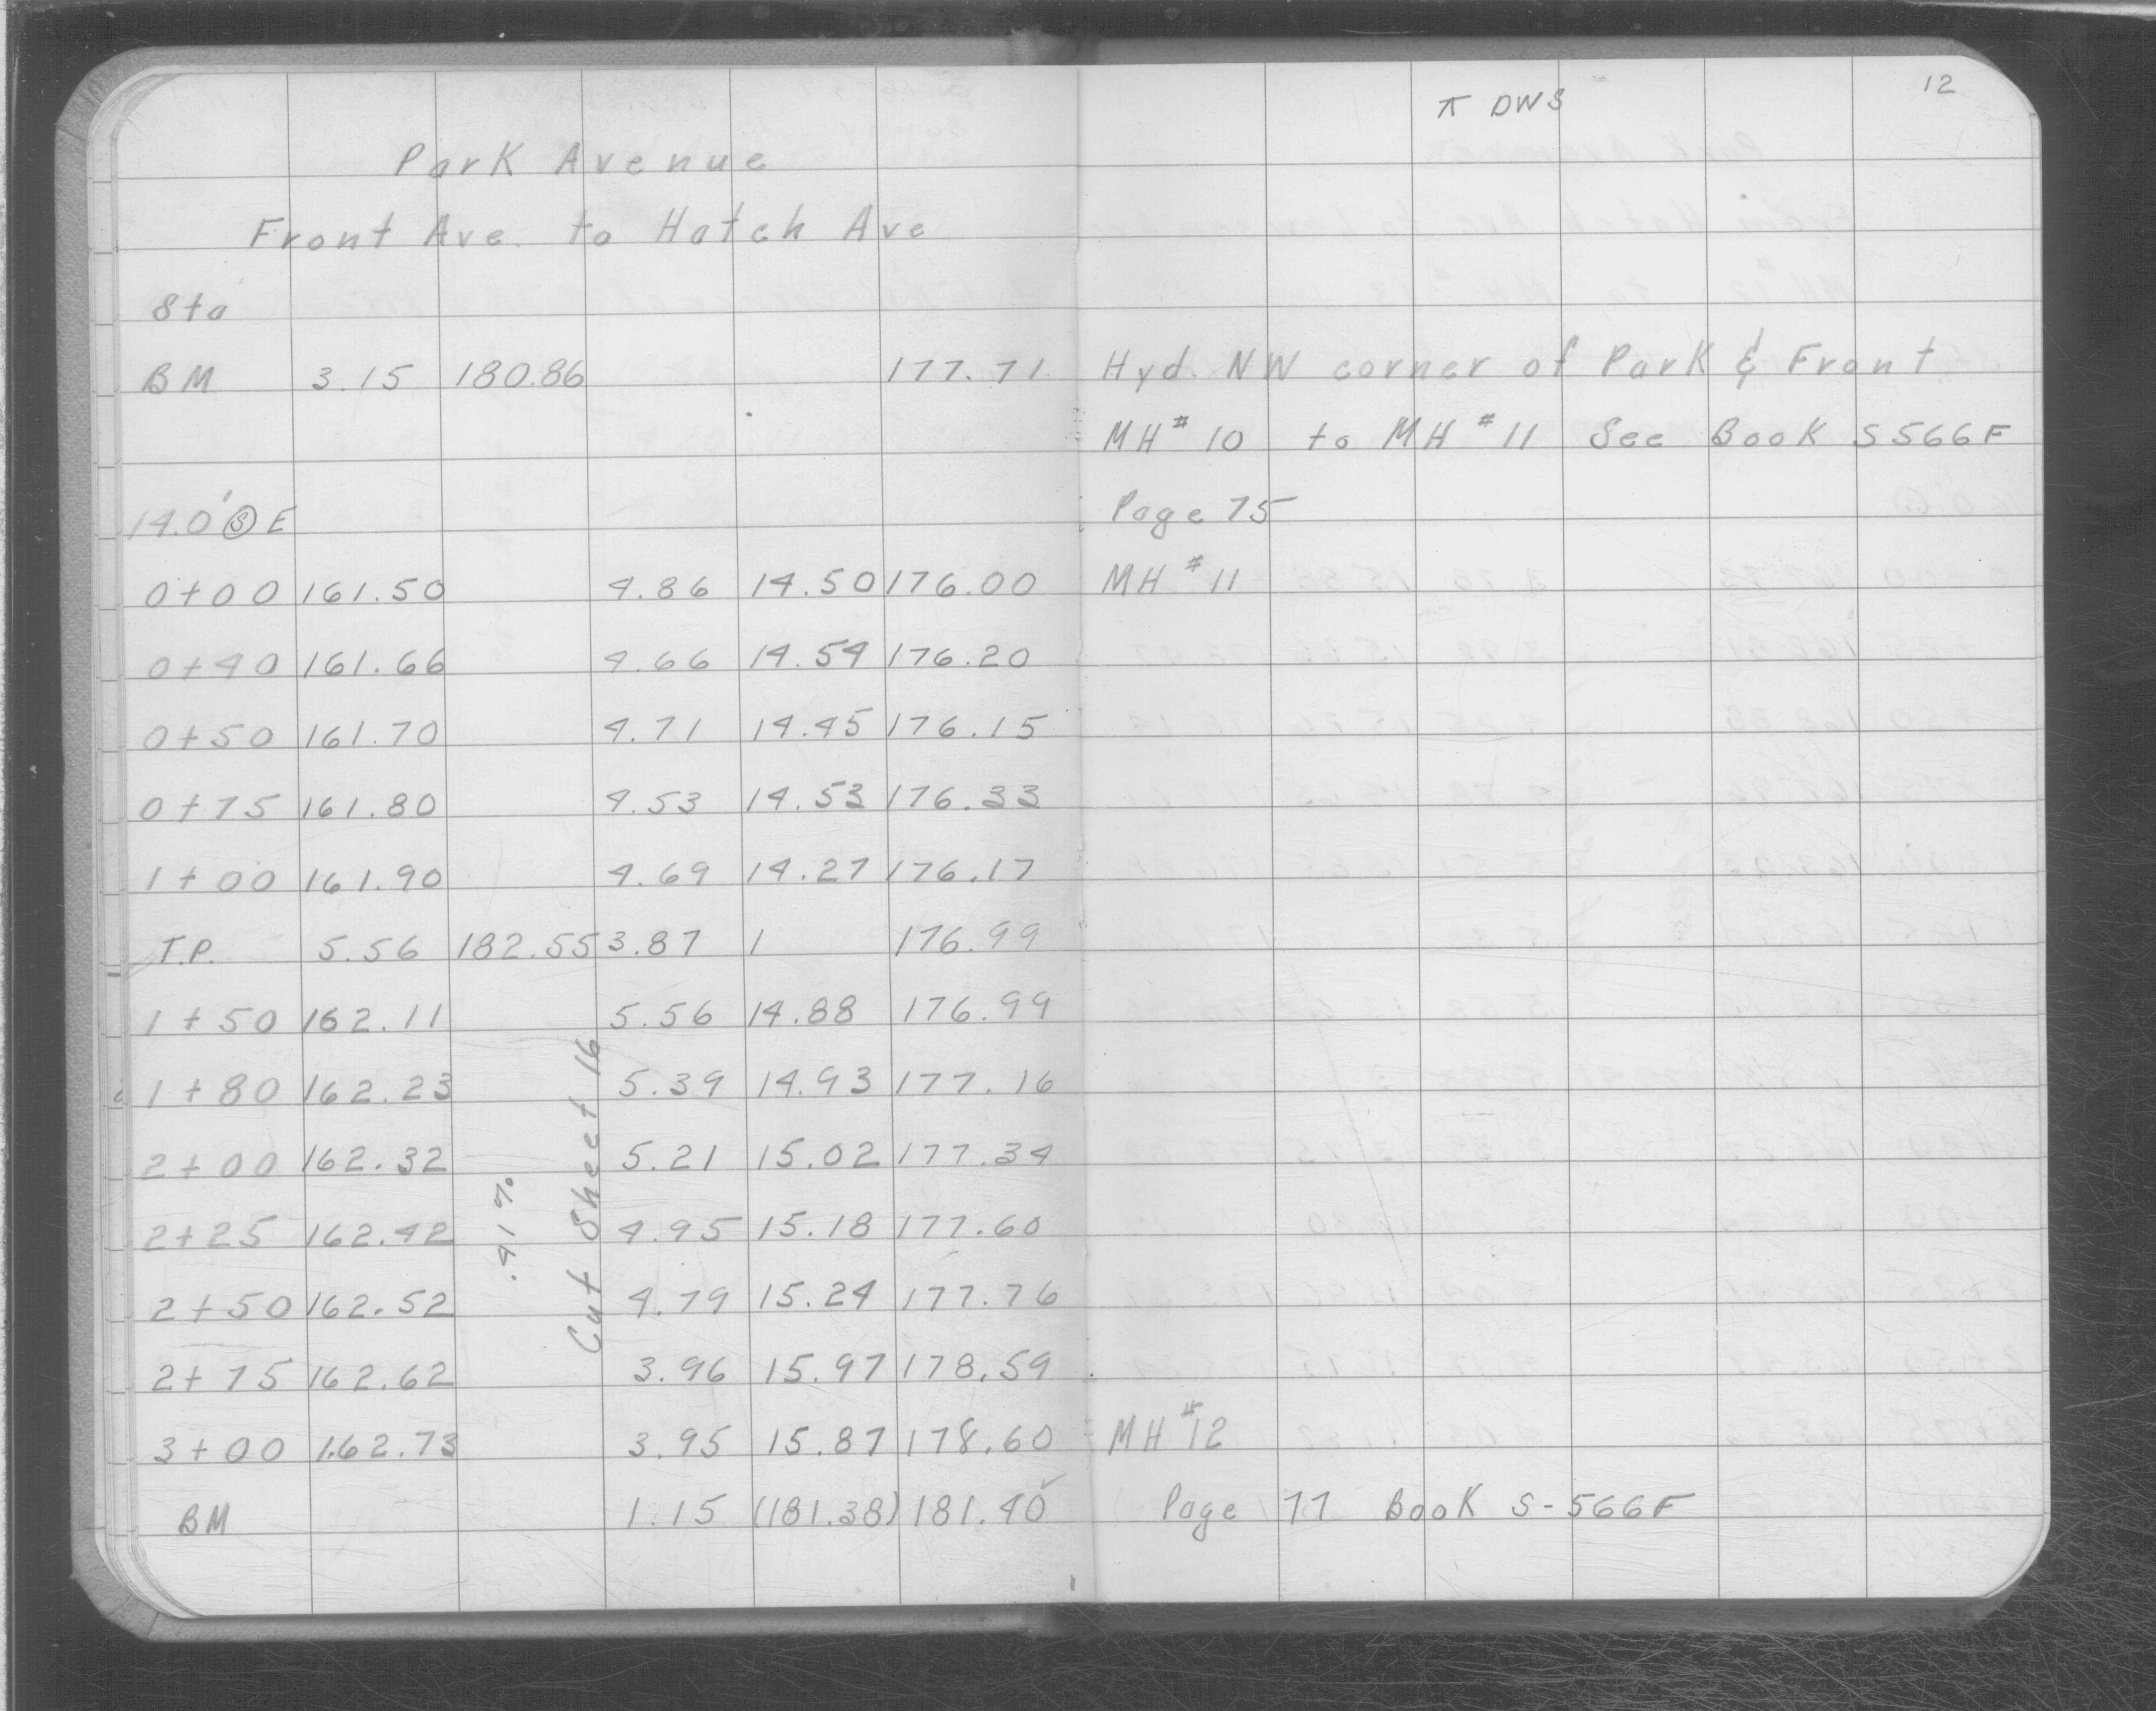 Park Avenue
Front Ave. to Hatch Ave
Sta
BM 3.15 180.86 177.71
14.0' Ⓢ E
0+00 161.50 4.86 14.50 176.00
0+40 161.66 4.66 14.54 176.20
0+50 161.70 4.71 14.45 176.15
0+75 161.80 4.53 14.53 176.33
1+00 161.90 4.69 14.27 176.17
T.P. 5.56 182.55 3.87 1 176.99
1+50 162.11 5.56 14.88 176.99
1+80 162.23 5.39 14.93 177.16
2+00 162.32 5.21 15.02 177.34
2+25 162.42 4.95 15.18 177.60
2+50 162.52 4.79 15.24 177.76
2+75 162.62 3.96 15.97 178.59
3+00 162.73 3.95 15.87 178.60
BM 1.15 (181.38) 181.40
.41%
Cut Sheet 16
12
π DWS
Hyd. NW corner of Park & Front
MH #10 to MH #11 See Book S566F
Page 75
MH #11
MH #12
Page 77 Book S-566F